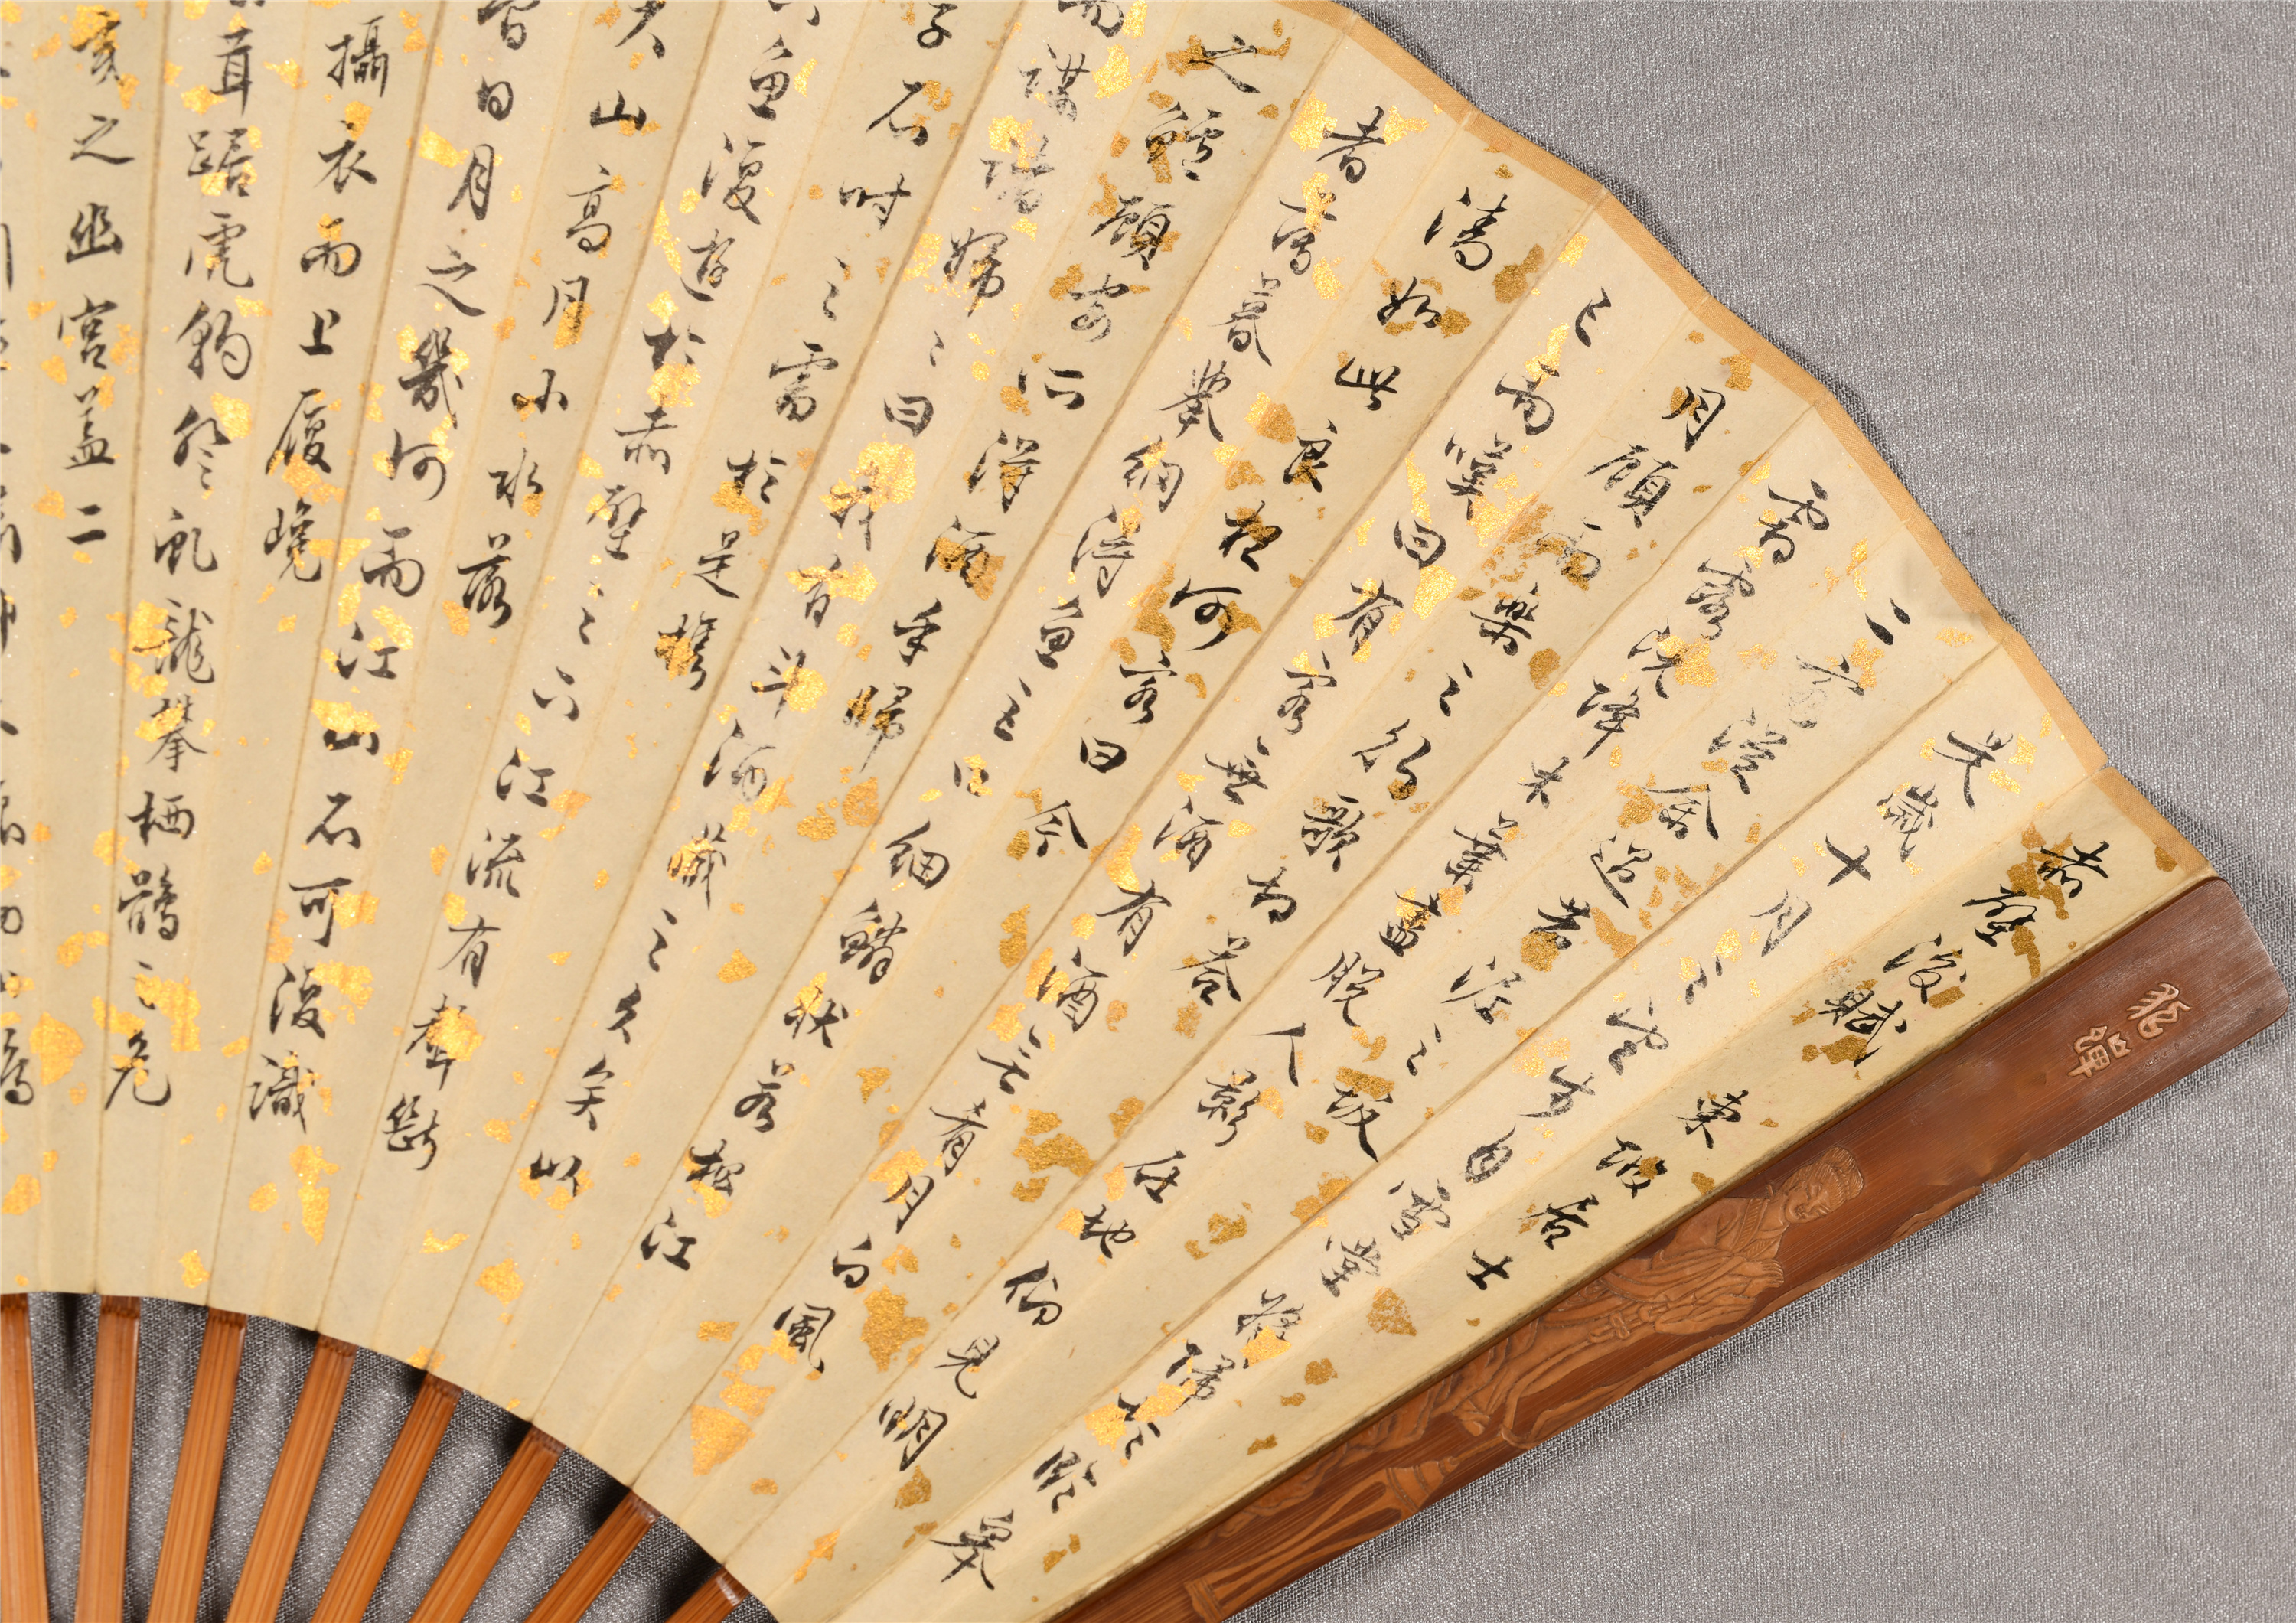 赤壁後賦 東坡居士
是歲十月之望步自雪堂將歸於臨皋
二客從余過黃泥之坂
霜露既降木葉盡脫人影在地仰見明
月顧而樂之行歌相答
已而嘆曰有客無酒有酒無肴月白風
清如此良夜何客曰今
者薄暮舉網得魚巨口細鱗狀若松江
之鱸顧安所得酒乎歸
而謀諸婦〻曰我有斗酒藏之久矣以
子不時之需於是攜
魚復遊於赤壁之下江流有聲斷
山高月小水落
曾日月之幾何而江山不可復識
攝衣而上履巉
茸踞虎豹登虬龍攀栖鶻之危
夷之幽宮蓋二